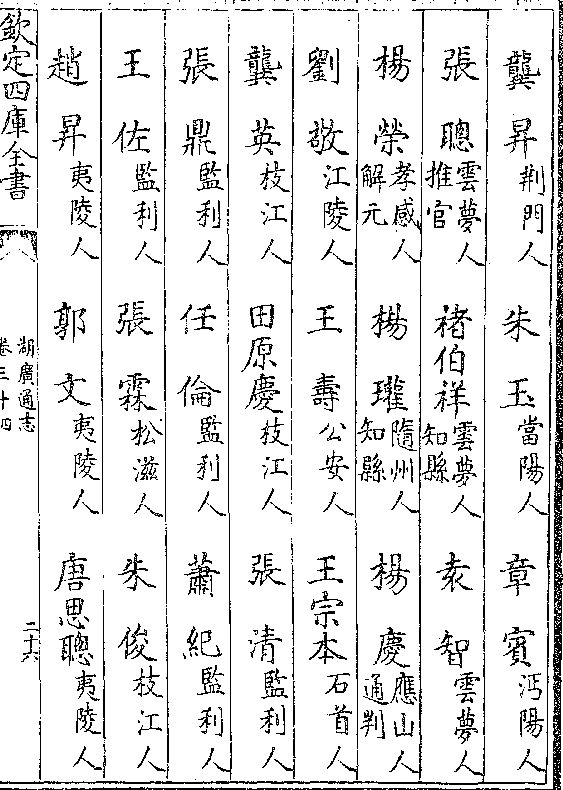 龔昇荆門人　朱玉當陽人　章賓沔陽人
張聰雲夢人推官　褚伯祥雲夢人知縣　袁智雲夢人
楊榮孝感人解元　楊瓘隨州人知縣　楊慶應山人通判
劉敬江陵人　王壽公安人　王宗本石首人
龔英枝江人　田原慶枝江人　張清監利人
張鼎監利人　任倫監利人　蕭紀監利人
王佐監利人　張霖松滋人　朱俊枝江人
趙昇夷陵人　郭文夷陵人　唐思聰夷陵人
欽定四庫全書　湖廣通志卷三十四　二十六